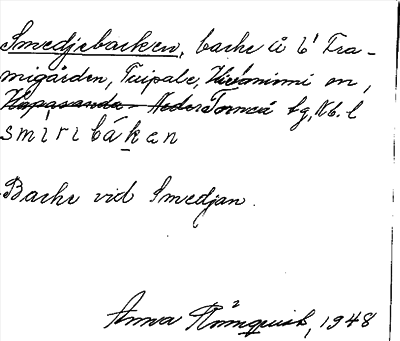 Smedjebacken, backe å 6¹ Fra-
migården, Tuipale, Hietaniemi sn,
Haparanda- Neder Torneå tg, Nb. l
smiribåken
Backe vid Smedjan.
Anna Rönnquist, 1948